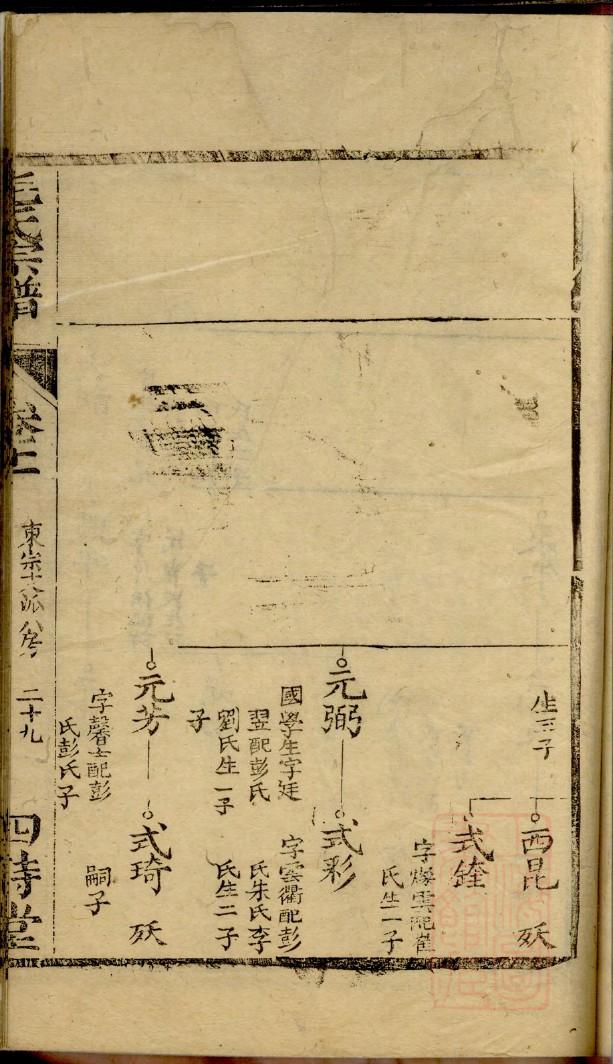 生三子
西昆
殀
式鍷
字燦雲配崔
氏生一子
元弼
國學生字廷
翌配彭氏
劉氏生一子
子
式彩
字雲衢配彭
氏朱氏李
氏生二子
元芳
字馨士配彭
氏彭氏子
式琦
嗣子
殀
氏宗譜
東宗十六派八房
二十九
四詩堂